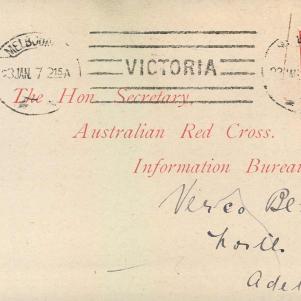 MELBOU
23 JAN 7 215A
VICTORIA
The Hon. Secretary,
Australian Red Cross.
Information Burea
Verco Be
North
Adel